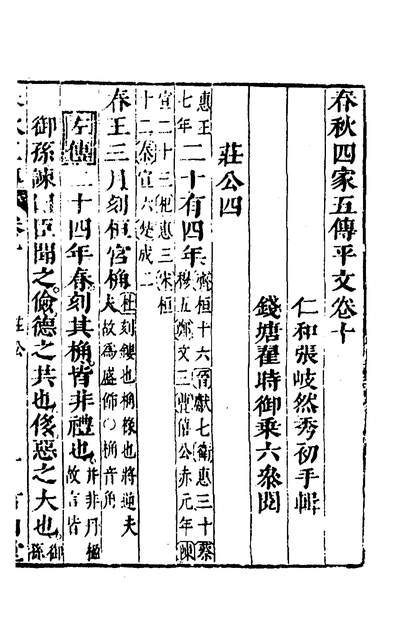 春秋四家五傳平文卷十
仁和張岐然秀初手輯
錢塘翟時御乘六叅閱
莊公四
惠王七年二十有四年齊桓十六晉獻七衛惠三十蔡穆五鄭文三曹僖公赤元年陳
宣二十三杞惠三宋桓十二秦宣六楚成二
春王三月刻桓宮桷杜刻鏤也桷椽也將逆夫夫故爲盛飾○桷音角
左傳二十四年春刻其桷皆非禮也并非丹楹故言皆
御孫諫曰臣聞之儉德之共也侈惡之大也御孫
莊公